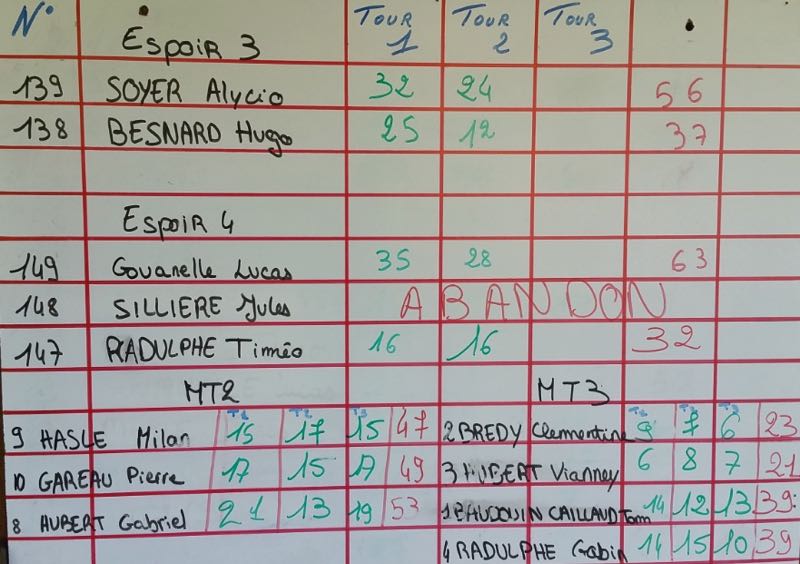 N° Espoir 3 Tour 1 Tour 2 Tour 3
139 SOYER Alycio 32 24 56
138 BESNARD Hugo 25 12 37
Espoir 4
149 Gouanelle Lucas 35 28 63
148 SILLIERE Jules ABANDON
147 RADULPHE Timéo 16 16 32
MT2 MT3
T1 T2 T3 T1 T2 T3
9 HASLE Milan 15 17 15 47 2 BREDY Clementine 9 7 6 23
10 GAREAU Pierre 17 15 17 49 3 HUBERT Vianney 6 8 7 21
8 AUBERT Gabriel 21 13 19 53 1 BAUDOUIN CAILLAUD Tom 14 12 13 39
4 RADULPHE Gabin 14 15 10 39